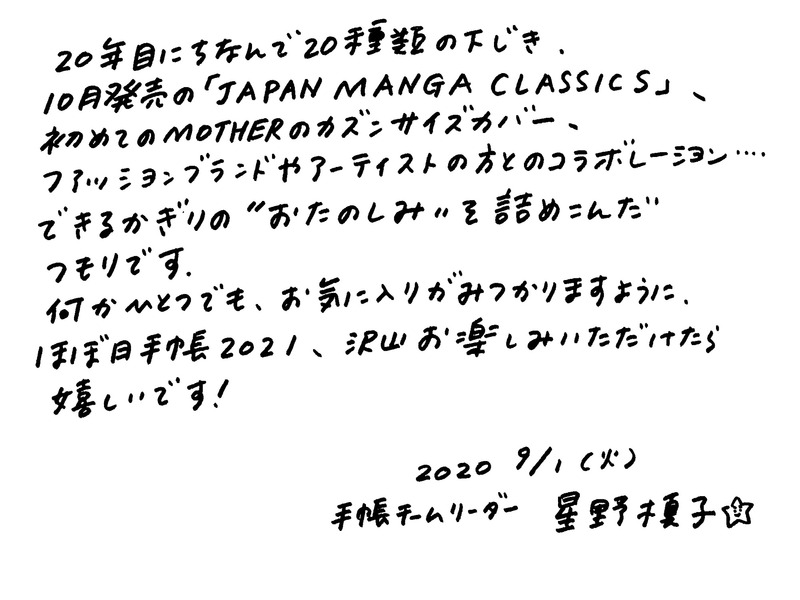 20年目にちなんで20種類の下じき.
10月発売の「JAPAN MANGA CLASSICS」、
初めてのMOTHERのカズンサイズカバー、
ファッションブランドやアーティストの方とのコラボレーション‥‥
できるかぎりの"おたのしみ"を詰めこんだ
つモリです.
何かひとつでも、お気に入りがみつかりますように.
ほぼ日手帳2021、沢山お楽しみいただけたら
嬉しいです!
2020 9/1(火)
手帳チームリーダー 星野槙子